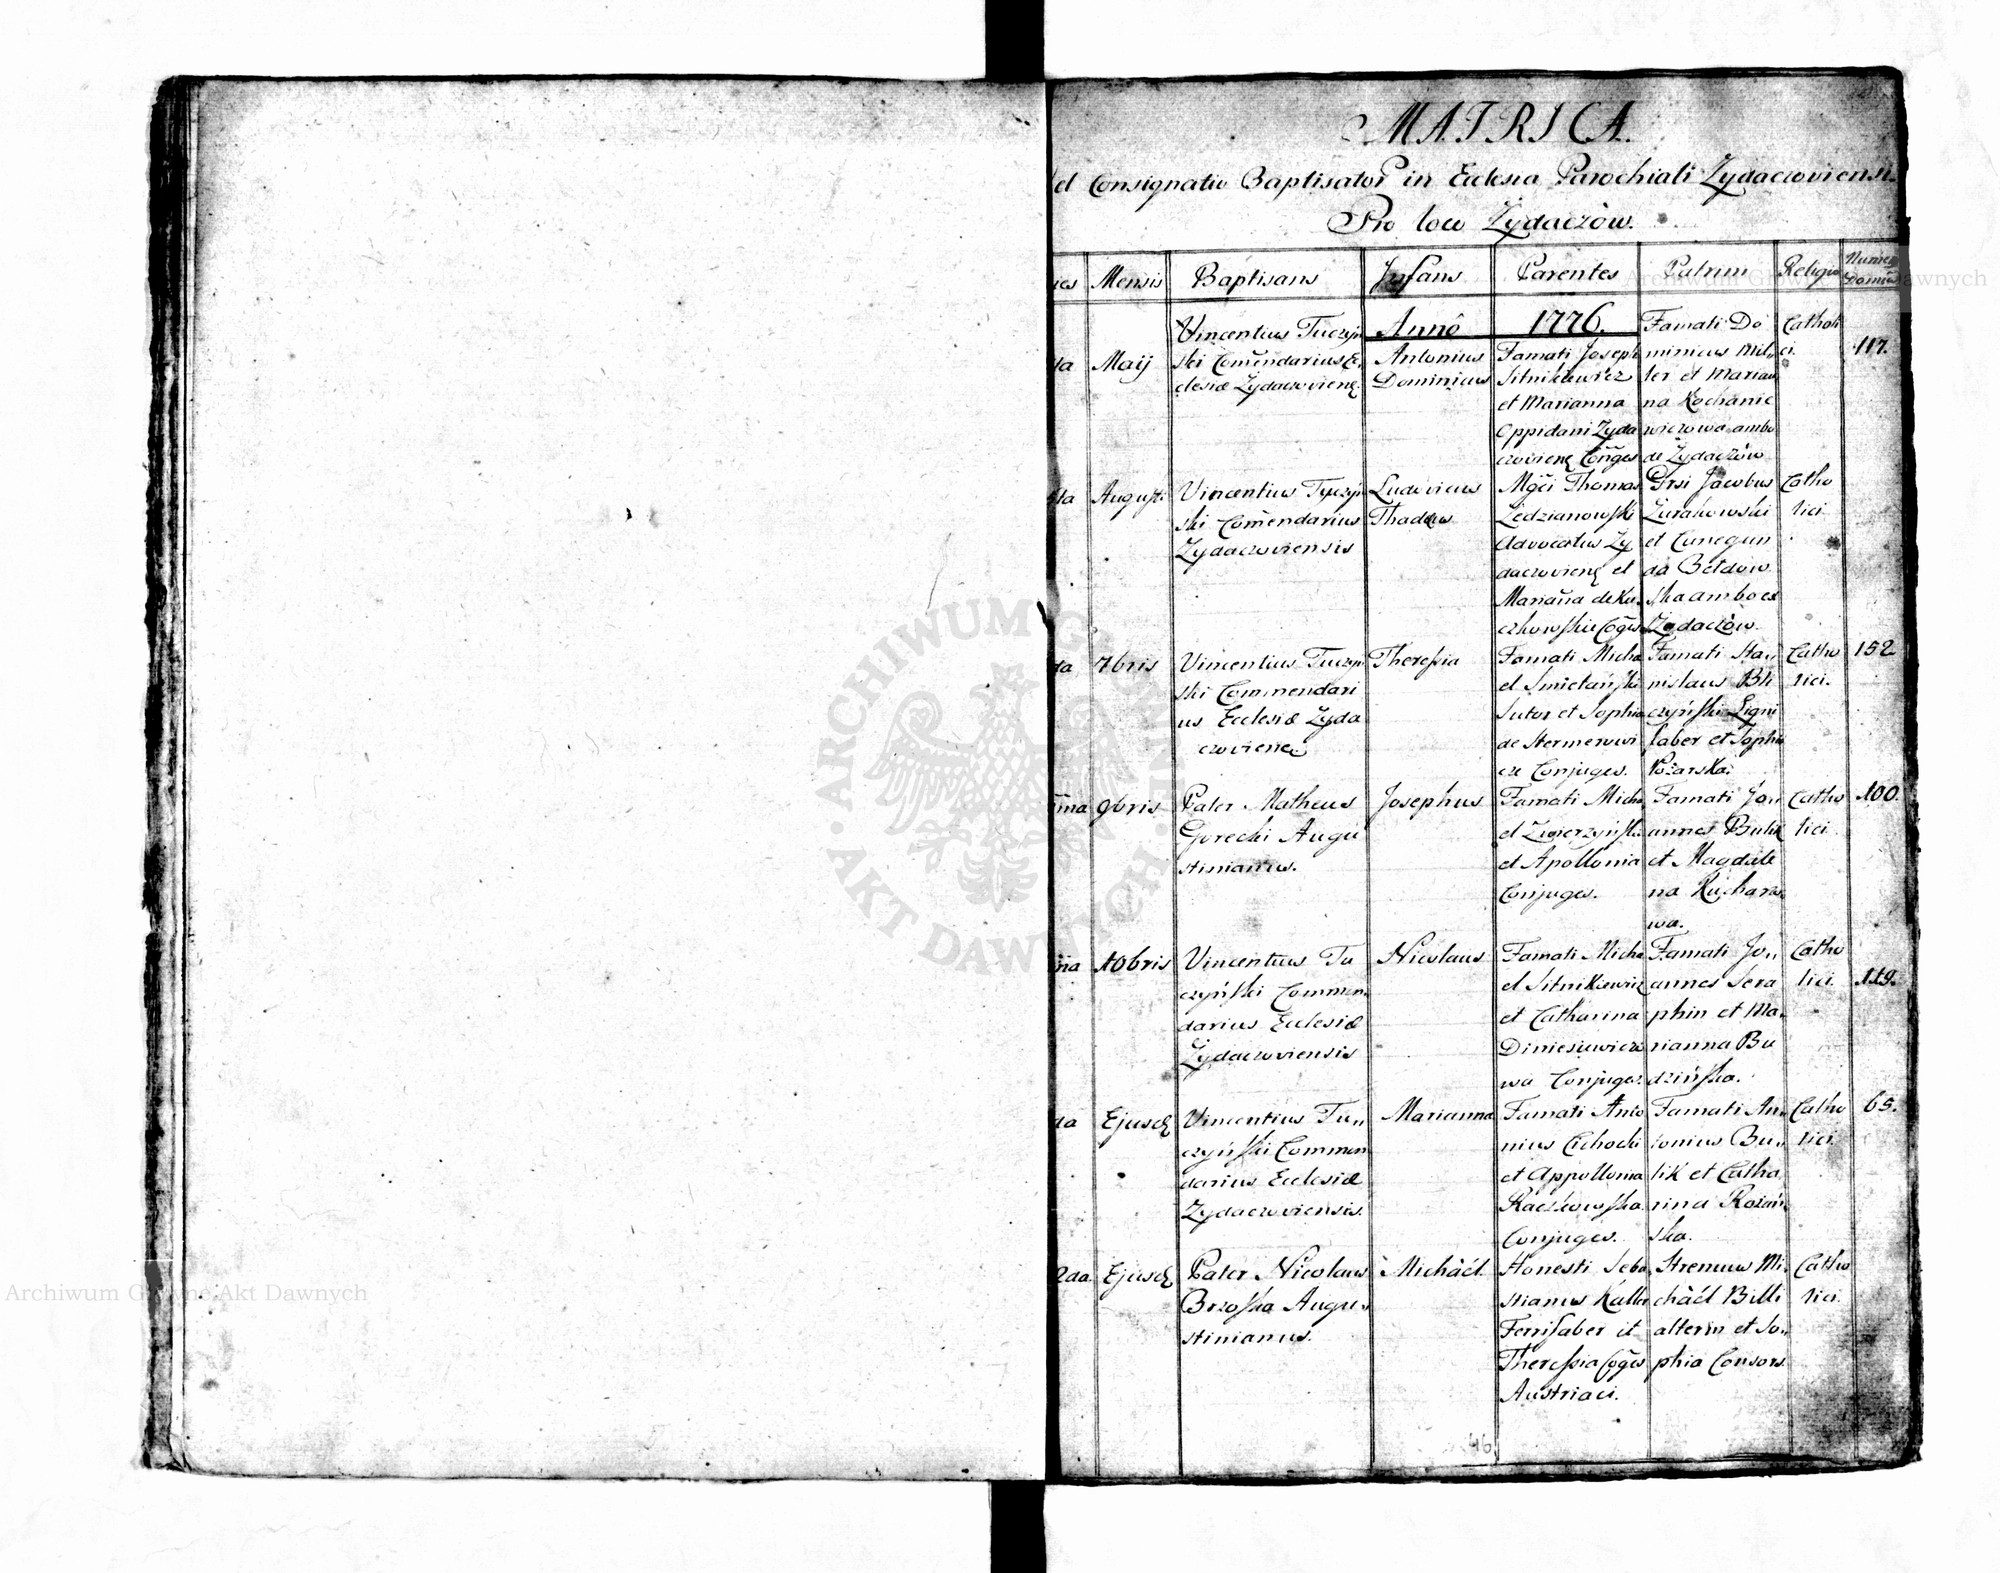 MATRICA.
el Consignatio Baptisator in Ecclesia Parochiali Zydaczoviensi
Pro loco Zydaczòw.
ies Mensis Baptisans Infans Parentes Patrini Religio Numer Domus
Annô 1776.
da Maij
Vincentius Tuczyń
ski Comendarius Ec
clesiæ Zydaczovienę
Antonius
Dominicus
Famati Joseph
Sitnikiewicz
et Marianna
Oppidani Zyda
czovienę Conges
Famati Do
minicus Mil,
ler et Marian
na Kochanie
wiczowa ambo
de Zydaczòw
Catholi
ci.
117.
Augusti
Vincentius Tuczyń
ski Comendarius
Zydaczoviensis
Ludovicus
Thadæus
Mgci Thomas
Ledzianowski
Advocatus Zy
daczovienę et
Mariana de Ku
czkowskie Coges
Grsi Jacobus
Zurakowski
et Cunegun
da Betdow
ska ambo ex
Zydaczòw.
Catho
lici.
da 7bris
Vincentius Tuczyń
ski Commendari
us Ecclesiæ Zyda
czovienę
Theressia
Famati Micha
el Smietański
Sutor et Sophia
de Stermerowi
cz Conjuges.
Famati Sta,,
nislaus Bli
czyński Ligni
faber et Sophia
Pożarska.
Catho
lici.
152
ma 9bris
Pater Matheus
Gorecki Augu
stinianus.
Josephus
Famati Micha
el Zwierzyński
et Apollonia
Conjuges.
Famati Jo,,
annes Bulik
et Magdale
na Kucharzo
wa.
Catho
lici.
100.
10bris
Vincentius Tu
czyński Commen
darius Ecclesiæ
Zydaczoviensis
Nicolaus
Famati Micha
el Sitnikiewicz
et Catharina
Diniesiewiczo
wa Conjuges.
Famati Jo,,
annes Sera
phin et Ma,
rianna Bu
dzińska.
Catho
lici.
119.
da Ejusdę
Vincentius Tu,,
czyński Commen
darius Ecclesiæ
Zydaczoviensis.
Marianna
Famati Anto
nius Cichocki
et Appollonia
Raczkowska
Conjuges.
Famati An
tonius Bu,,
lik et Catha
rina Rożań
ska.
Catho
lici.
65.
2da Ejusdę
Pater Nicolaus
Brzoska Augu,
stinianus.
Michàél
Honesti Seba
stianus Kaller
Ferrifaber et
Theressia Coges
Austriaci.
Strenuus Mi
chàél Billi
alterm et So,,
phia Consors
Catho
lici.
46
ARCHIWUM GŁÓWNE AKT DAWNYCH
Archiwum Główne Akt Dawnych
Archiwum Główne Akt Dawnych